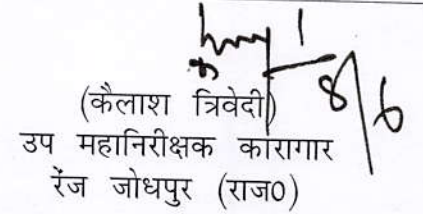 8/6
(कैलाश त्रिवेदी)
उप महानिरीक्षक कारागार
रेंज जोधपुर (राज0)